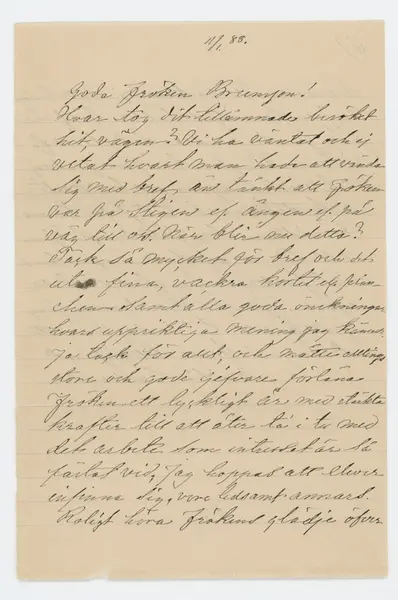 11/1 88.
Goda Fröken Brunson!
Hvar tog dit tillämnade besöket
hit, vägen? Vi ha väntat och ej
vetat hvart man hade att vända
sig med bref, än tänkt att Fröken
var på Stigen ej Ängen ej på
väg till oss. När blir nu detta?
Tack så mycket för bref och det
fina, vackra kortet
samt alla goda önskningar
hvars uppriktiga mening jag känner.
Ja tack för allt, och måtte alltings
store och gode gifvare förläna
Fröken ett lyckligt år med stärkta
krafter till att åter ta i tu med
det arbete som intresset är så
fästat vid. Jag hoppas att elever
infinna sig, vore ledsamt annars.
Roligt höra Frökens glädje öfver